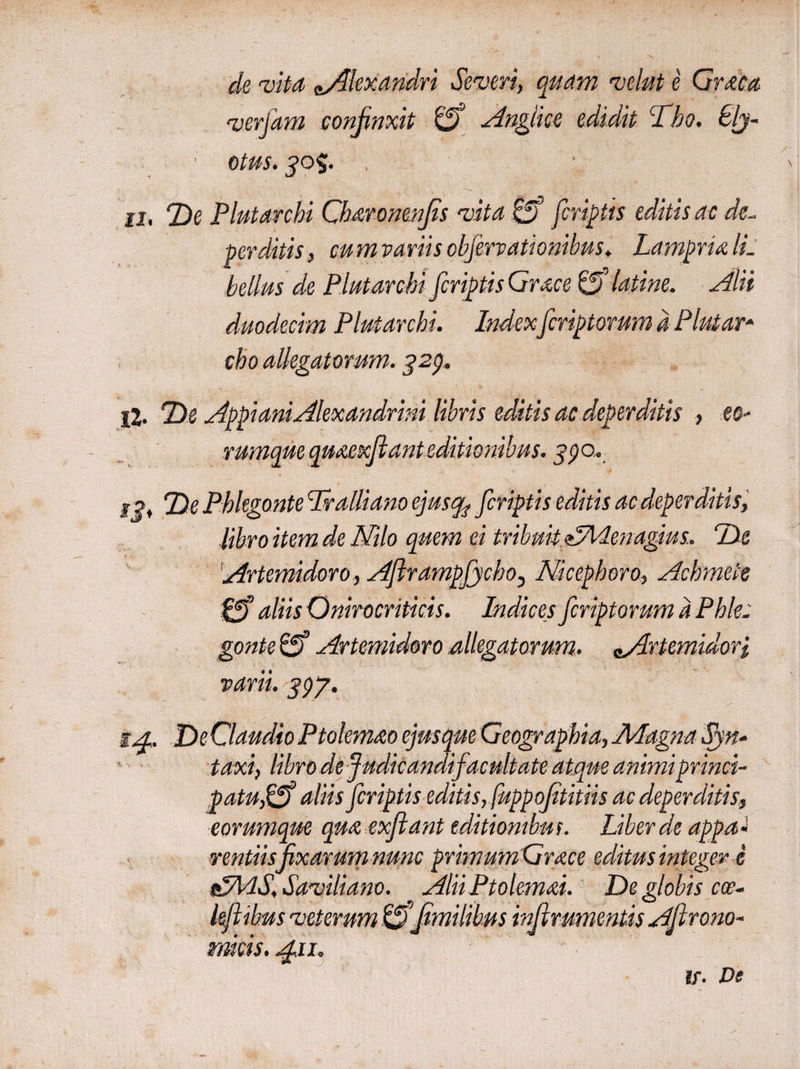 de vita Alexandri Severi, quam velut è Græca
versam confinxit & Anglice edidit Tho. Ely-
otus. 305.
11. De Plutarchi Chæronensis vita & scriptis editis ac de-
perditis, cum variis observationibus. Lampriæ li-
bellus de Plutarchi scriptis Græce & latine. Alii
duodecim Plutarchi. Index scriptorum à Plutar-
cho allegatorum. 329.
12. De Appiani Alexandrini libris editis ac deperditis, eo-
rumque quæ exstant editionibus. 390.
13. De Phlegonte Tralliano ejusq; scriptis editis ac deperditis,
libro item de Nilo quem ei tribuit Menagius. De
Artemidoro, Astrampsycho, Nicephoro, Achmete
& aliis Onirocriticis. Indices scriptorum à Phle-
gonte & Artemidoro allegatorum. Artemidori
varii. 397.
14. De Claudio Ptolemæo ejusque Geographia, Magna Syn-
taxi, libro de Judicandi facultate atque animi princi-
patu, & aliis scriptis editis, suppositiis ac deperditis,
eorumque quæ exstant editionibus. Liber de appa-
rentiis fixarum nunc primum Græce editus integer è
MS. Saviliano. Alii Ptolemæi. De globis cœ-
lestibus veterum & similibus instrumentis Astrono-
micis. 411.
15. De